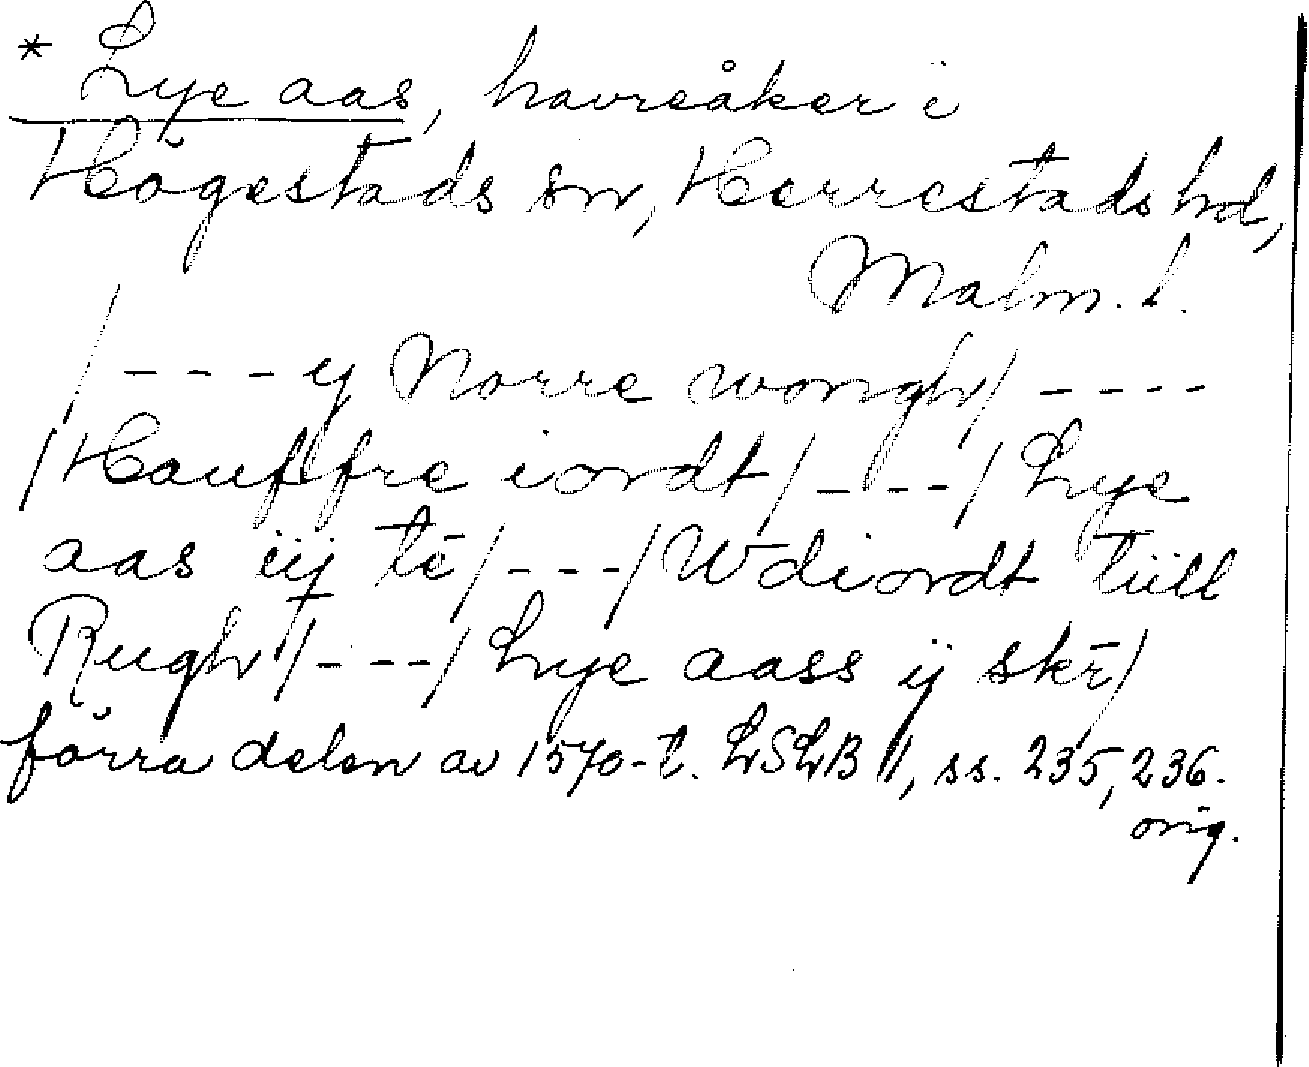 * Lye aas, havreåker i
Högestads sn, Herrestads hd,
Malm. l.
/---y Norre wongh/----
/Hauffre iordt/----/Lye
aas iij te̅/---/Wdiordt tiill
Rugh/----/Lye aass ij skr̅/
förra delen av 1570-t. LSLB II, ss. 235, 236.
orig.